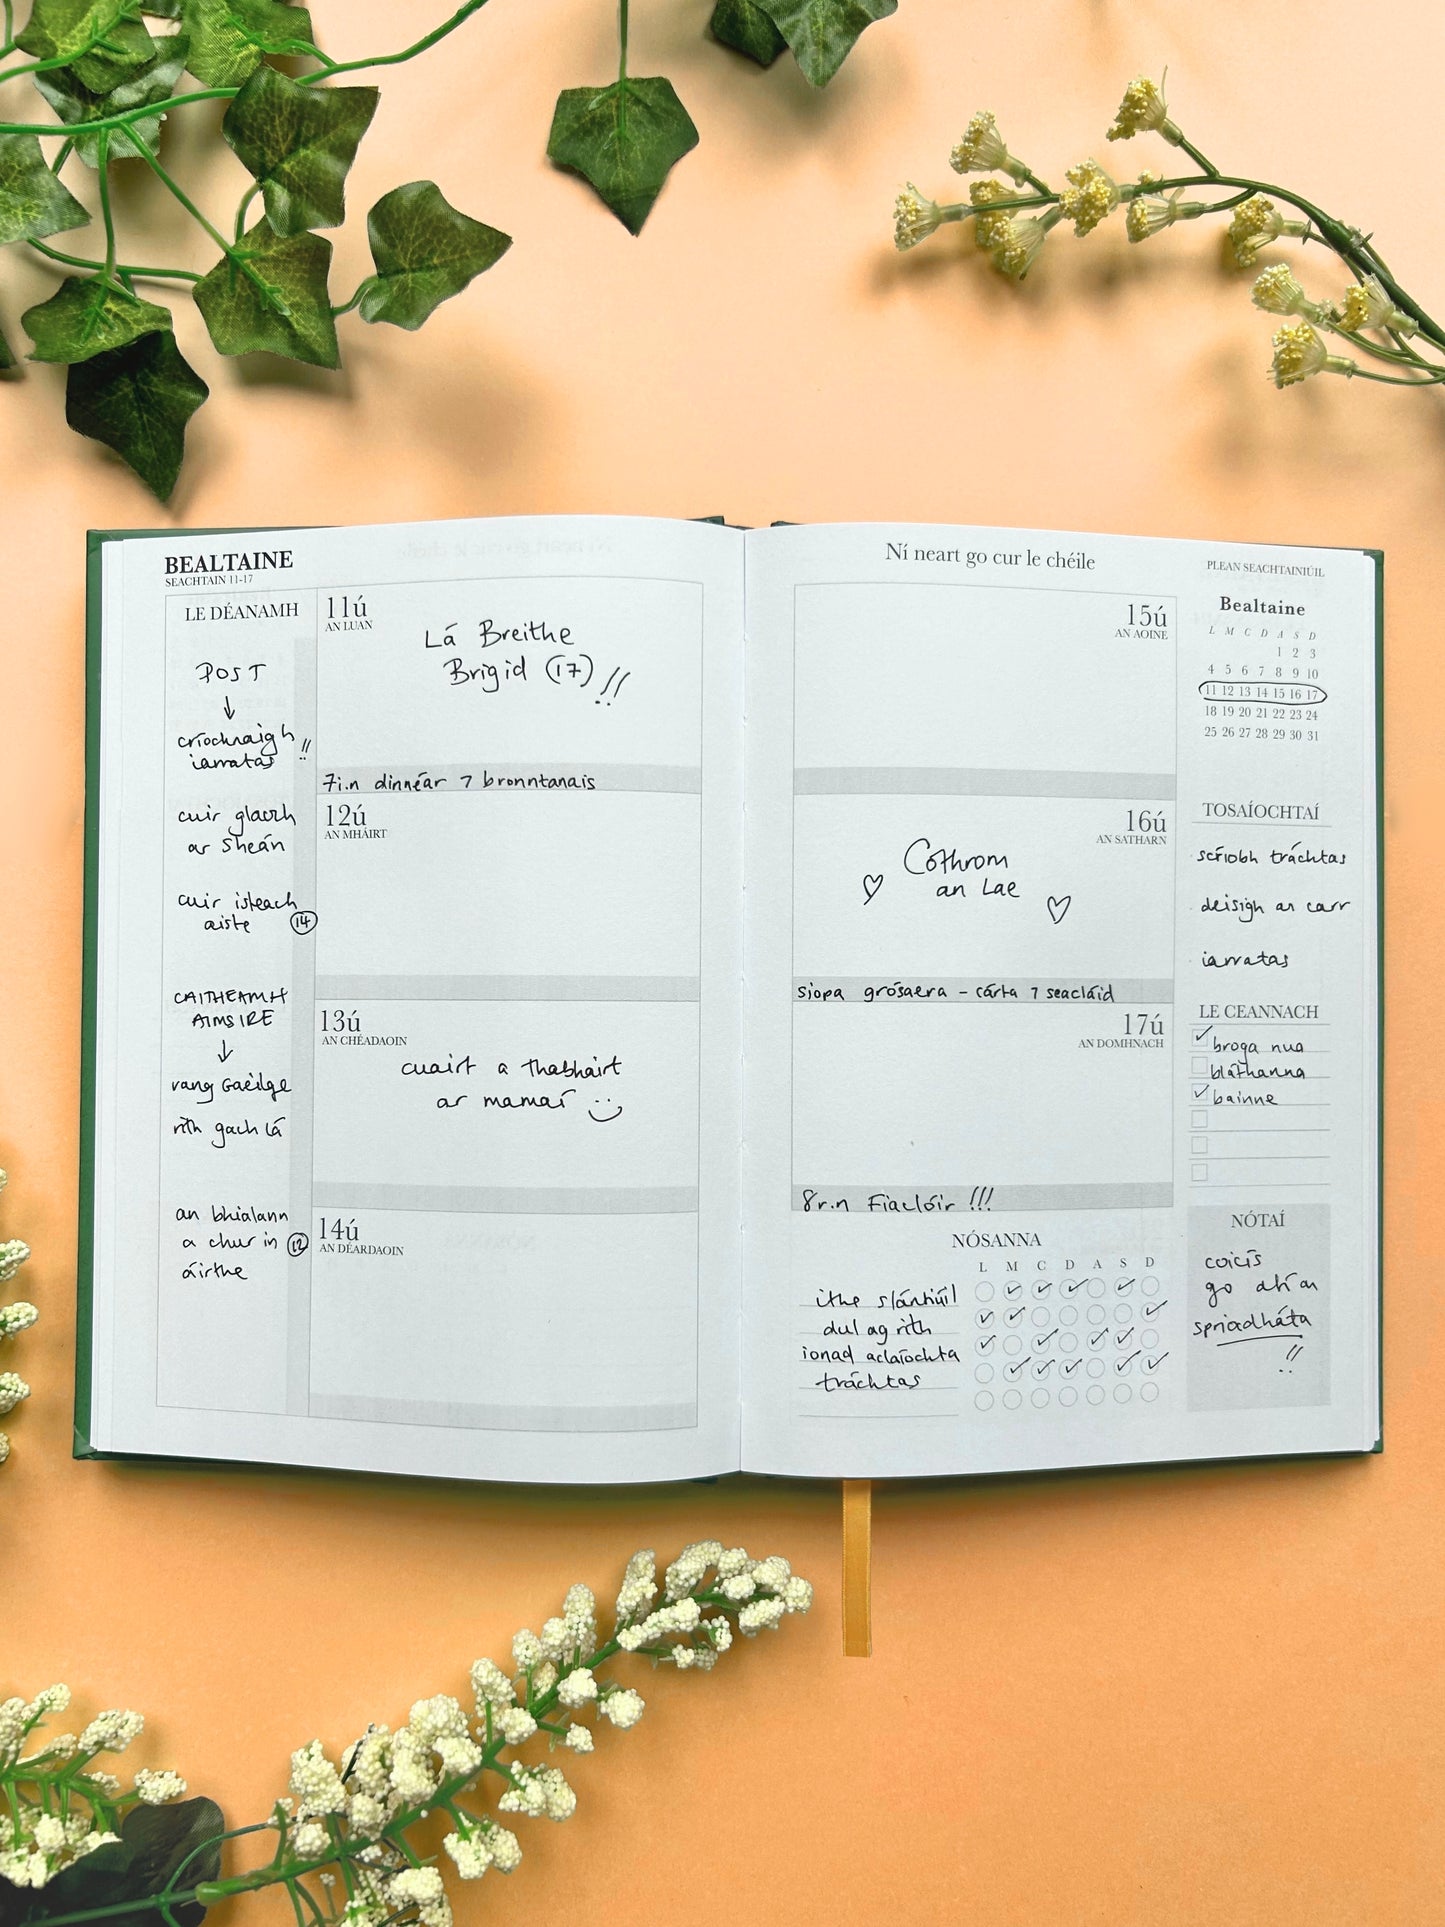 BEALTAINE
SEACHTAIN 11-17
LE DÉANAMH
POST
↓
críochnaigh !!
iarratas
cuir glaoch
ar Sheán
cuir isteach
aiste 14
CAITHEAMH
AIMSIRE
↓
rang Gaeilge
rith gach lá
an bhialann
a chur in 12
áirthe
11ú
AN LUAN
Lá Breithe
Brigid (17) !!
7i.n dinnéar ⁊ bronntanais
12ú
AN MHÁIRT
13ú
AN CHÉADAOIN
cuairt a thabhairt
ar mamaí
14ú
AN DÉARDAOIN
Ní neart go cur le chéile
15ú
AN AOINE
16ú
AN SATHARN
Cothrom
an Lae
siopa grósaera – cárta ⁊ seacláid
17ú
AN DOMHNACH
8r.n Fiaclóir !!!
NÓSANNA
L M C D A S D
ithe slántiúil
dul ag rith
ionad aclaíochta
tráchtas
PLEAN SEACHTAINIÚIL
Bealtaine
L M C D A S D
1 2 3
4 5 6 7 8 9 10
11 12 13 14 15 16 17
18 19 20 21 22 23 24
25 26 27 28 29 30 31
TOSAÍOCHTAÍ
scríobh tráchtas
deisigh an carr
iarratas
LE CEANNACH
✓ broga nua
bláthanna
✓ bainne
NÓTAÍ
coicís
go dtí an
spriocdháta
!!